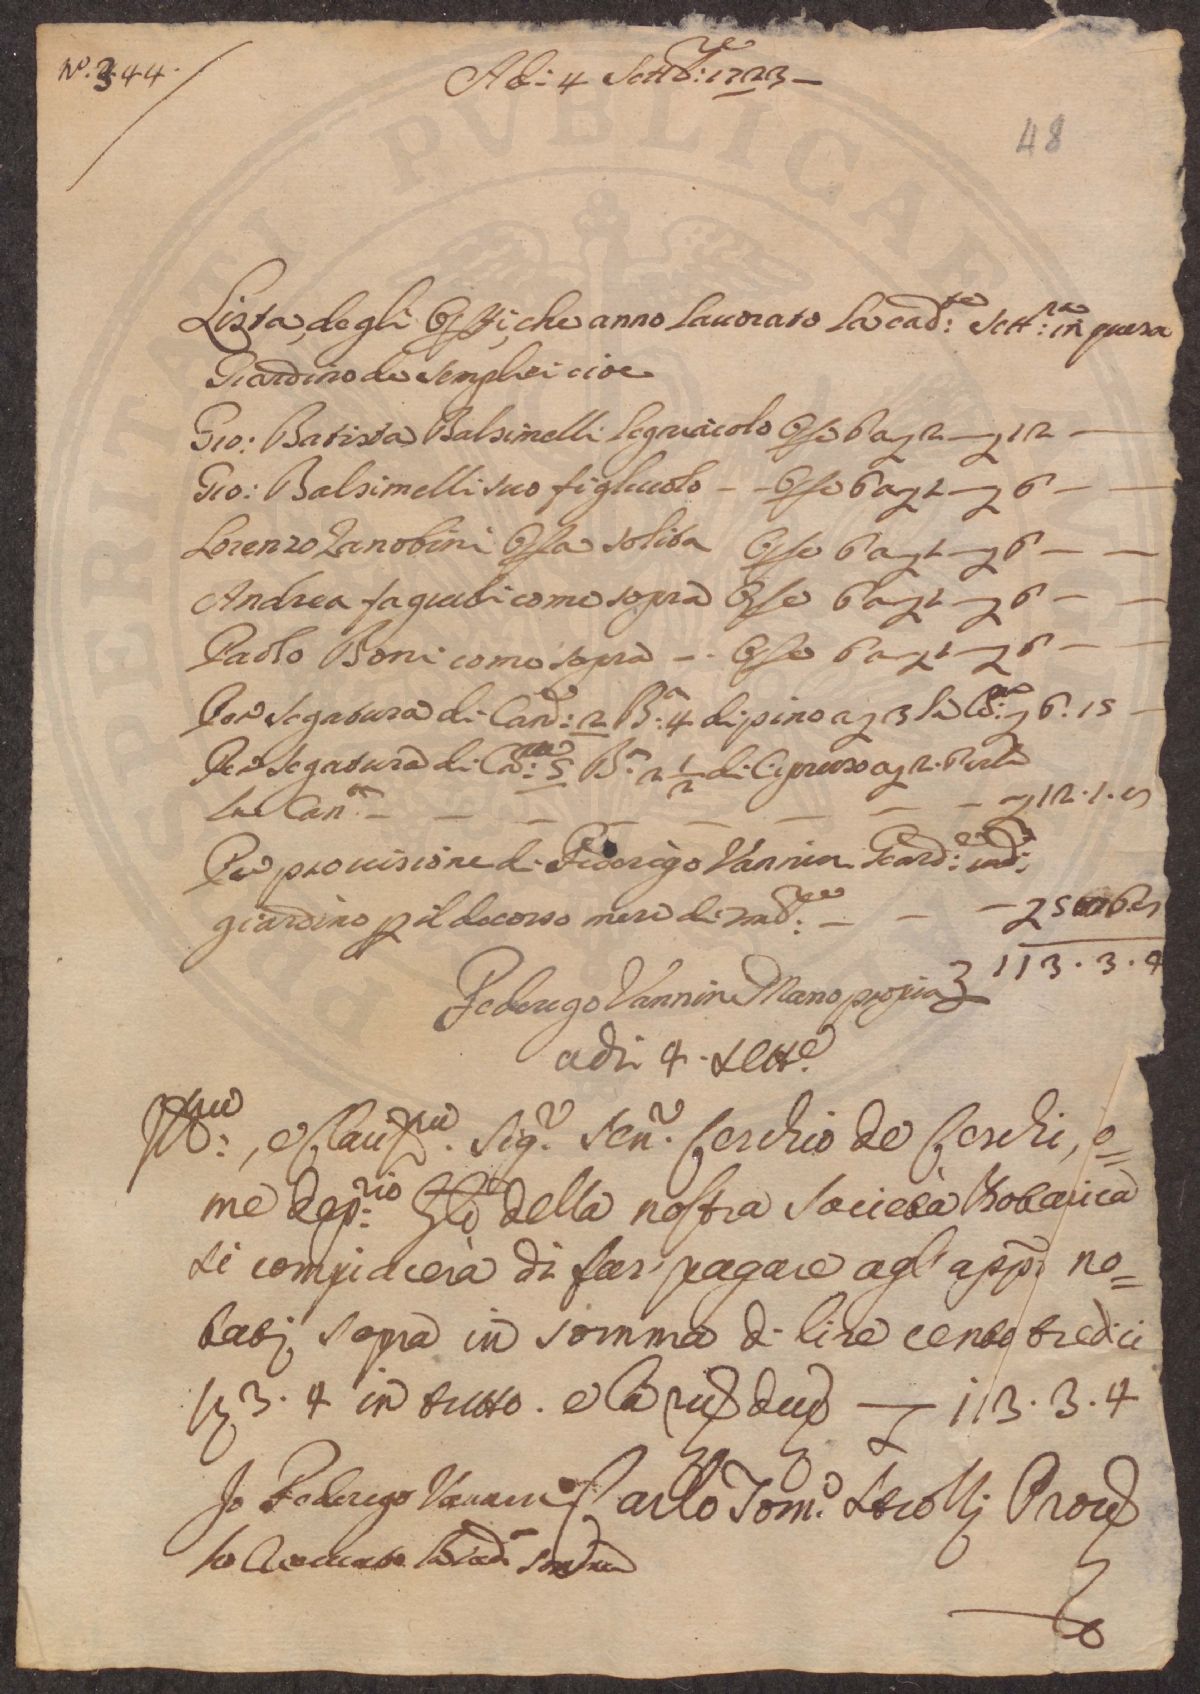 N.o 344.
A di: 4 Settb:re 1723 —
48
Lista degli Opre, che anno lauorato la cad:te Sett:na in questo
Giardino de Semplici cioe
Gio: Batista Balsimelli legnaiolo Opre 6 a £ 2 — £ 12 —
Gio: Balsimelli suo figliuolo — Opre 6 a £ 1 — £ 6 — —
Lorenzo Zanobini Opra solita Opre 6 a £ 1 — £ 6 — —
Andrea fagiuoli come sopra Opre 6 a £ 1 — £ 6 — —
Paolo Boni come sopra — Opre 6 a £ 1 — £ 6 — —
Per segatura di Can: 2 B:a 4 di pino a £ 3 la £ 6:15 —
Per segatura di 5 B:a 2 1/2 di Cipresso a £ 2
la Can:a — — — — — — — £ 12.1.
Per prouisione di Federigo Vannini Giard:
giardino p il decorso mese di — — — £
113.3.4
Federigo Vannini Mano propria
adi 4. Sette
Sig.r Sen.r Cerchio de Cerchi, e=
me dep:rio della nostra Società Botanica
si compiacerà di far' pagare agl'app.i no=
tati sopra in somma di lire cento tredici
3.4 in tutto. e la — £ 113.3.4
Io Federigo Vannini Carlo Tom.o Proue
ho Riceuuto la cad:a